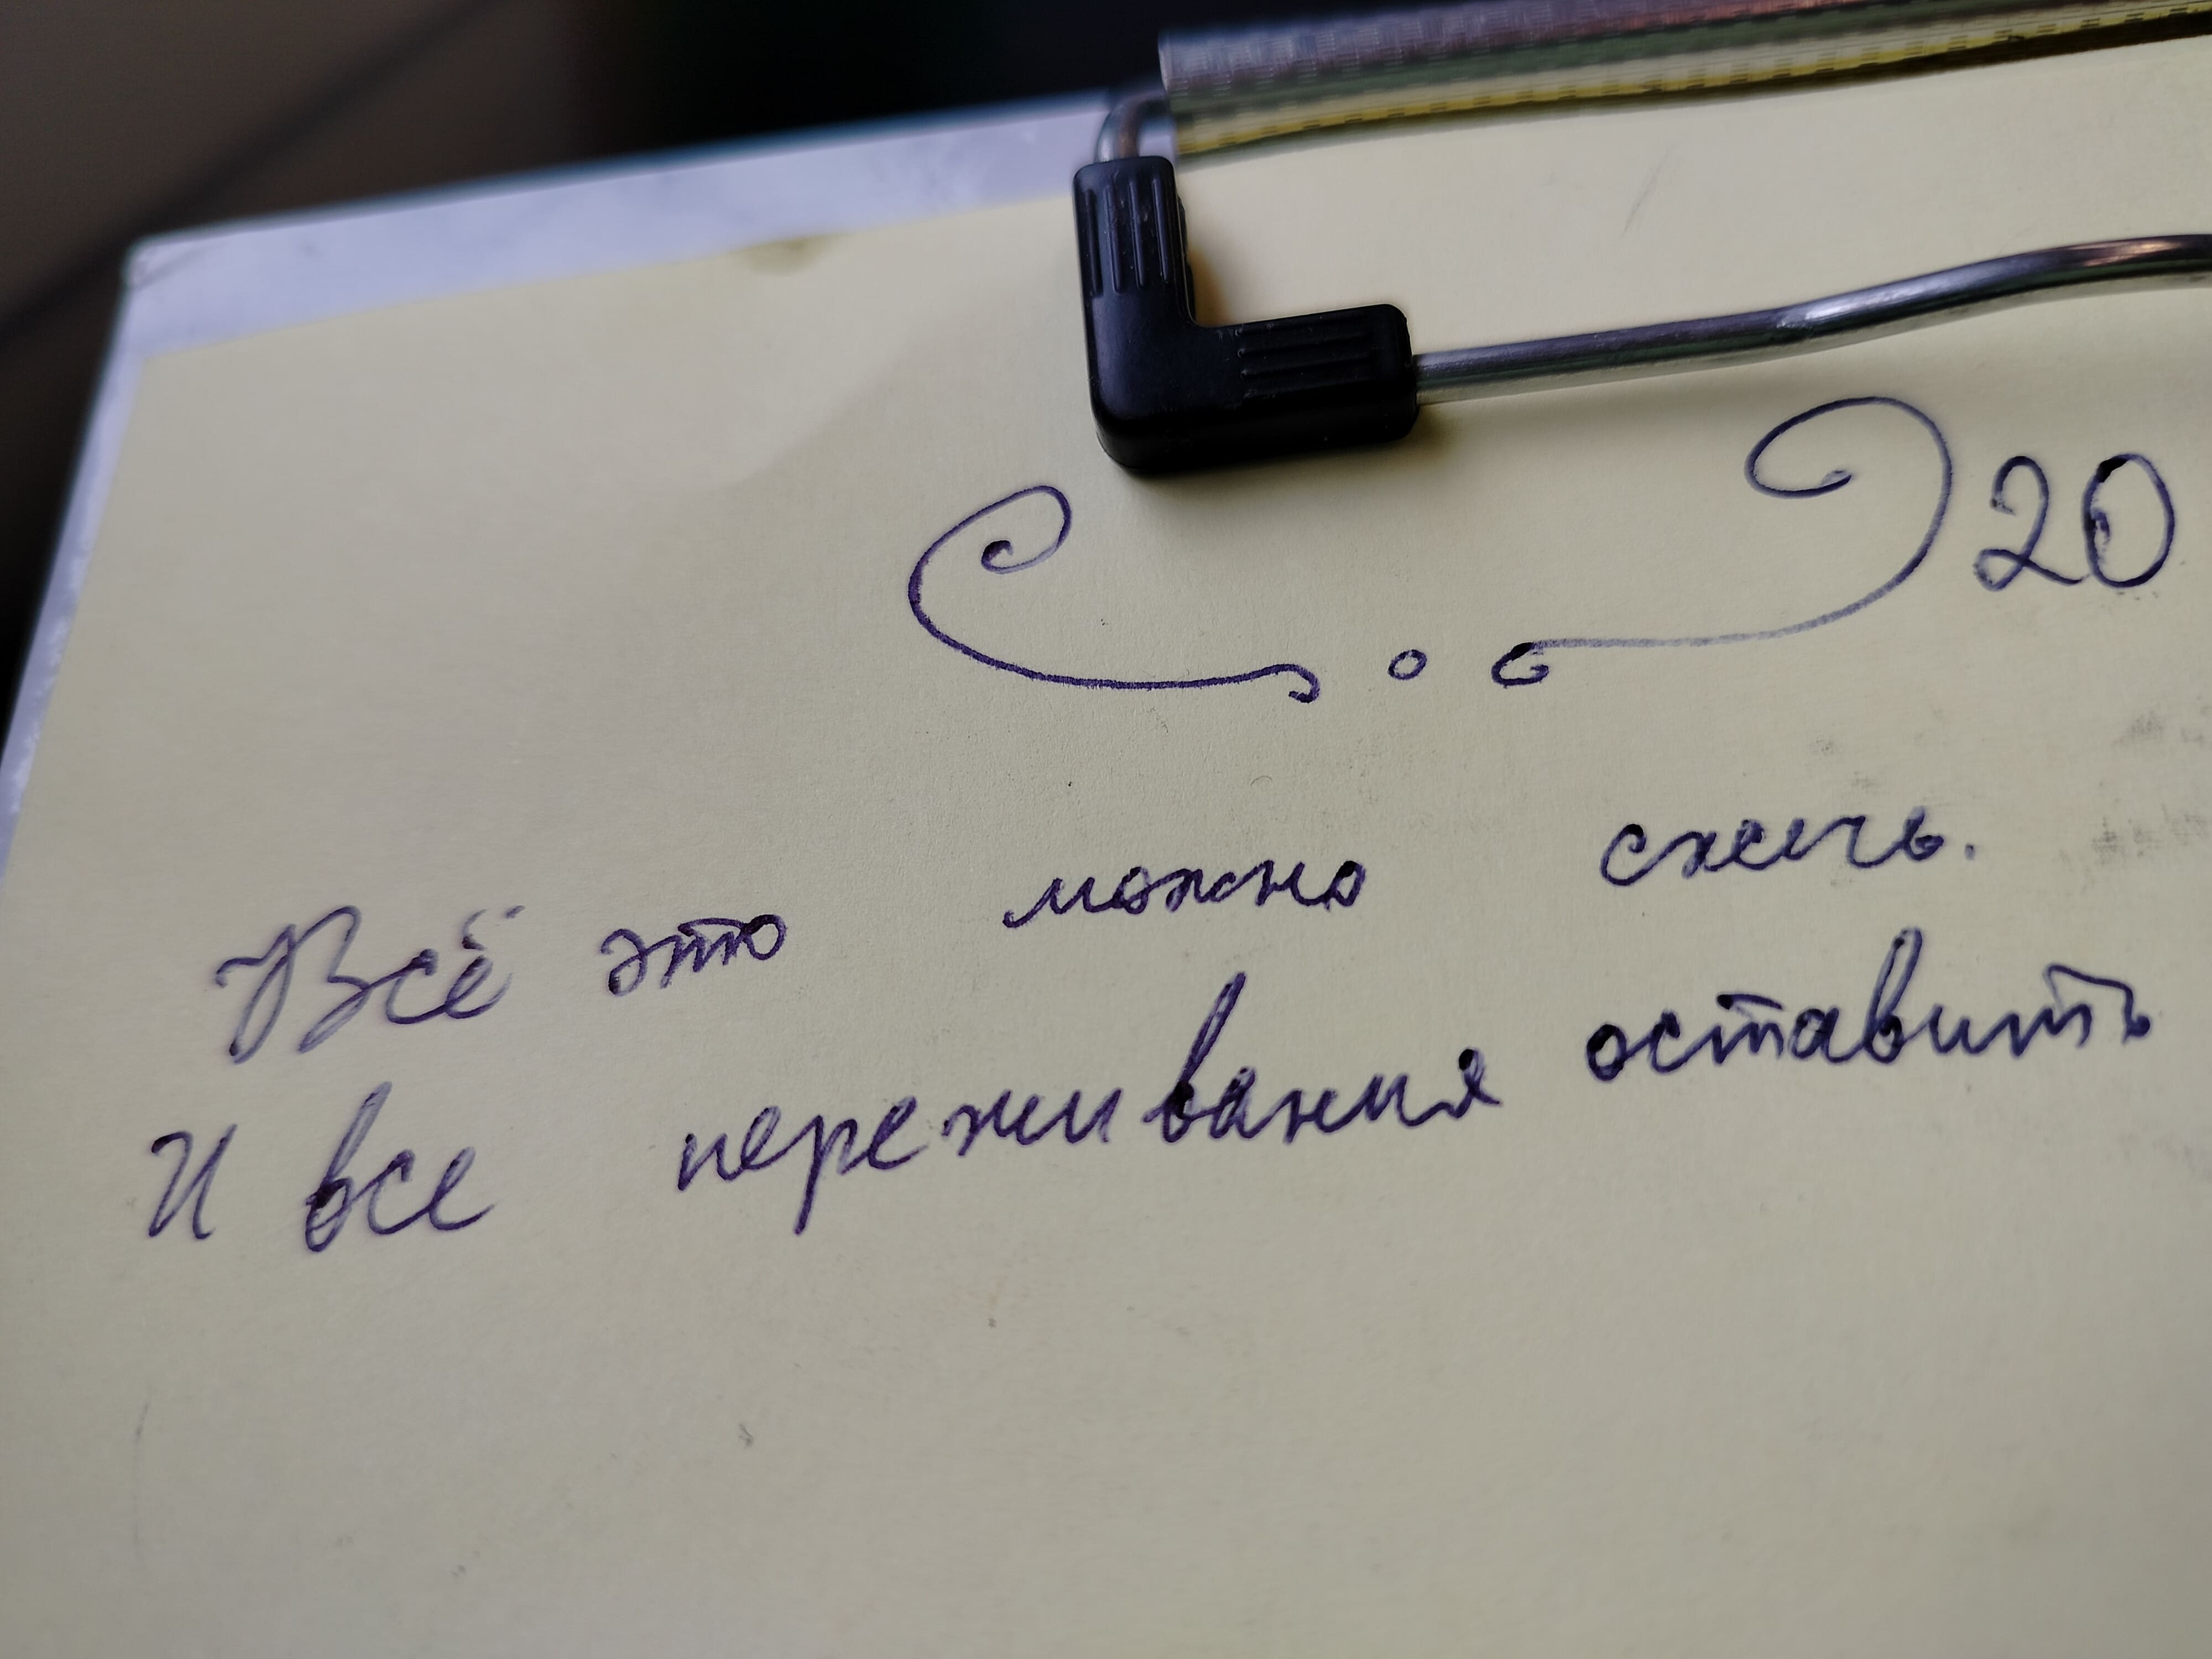 20
Всё это можно сжечь.
И все переживания оставить